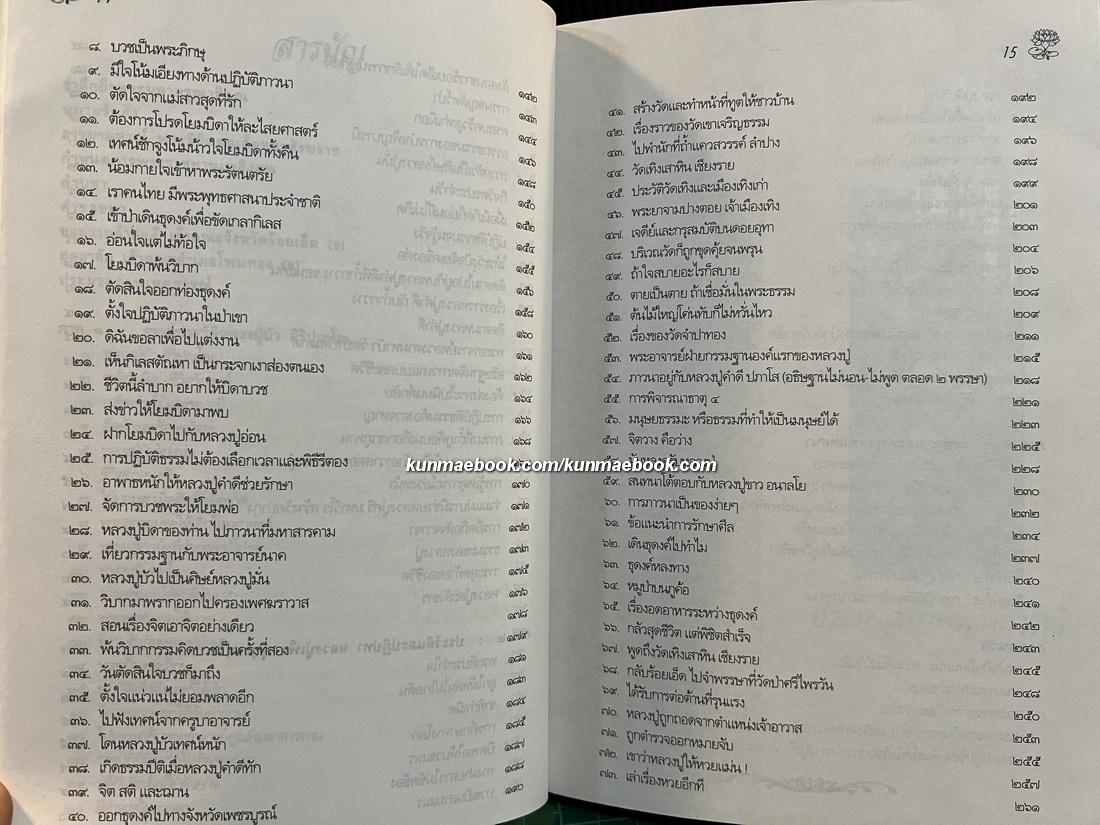 ๘. บวชเป็นพระภิกษุ ๑๔๒
๙. มีใจโน้มเอียงทางด้านปฏิบัติภาวนา ๑๔๓
๑๐. ตัดใจจากแม่สาวสุดที่รัก ๑๔๔
๑๑. ต้องการโปรดโยมบิดาให้ละไสยศาสตร์ ๑๔๖
๑๒. เทศน์ชักจูงโน้มน้าวใจโยมบิดาทั้งคืน ๑๔๘
๑๓. น้อมกายใจเข้าหาพระรัตนตรัย ๑๕๐
๑๔. เราคนไทย มีพระพุทธศาสนาประจำชาติ ๑๕๒
๑๕. เข้าป่าเดินธุดงค์เพื่อขัดเกลากิเลส ๑๕๔
๑๖. อ่อนใจแต่ไม่ท้อใจ ๑๕๕
๑๗. โยมบิดาพ้นวิบาก ๑๕๖
๑๘. ตัดสินใจออกท่องธุดงค์ ๑๕๘
๑๙. ตั้งใจปฏิบัติภาวนาในป่าเขา ๑๖๐
๒๐. ดิฉันขอลาเพื่อไปแต่งงาน ๑๖๑
๒๑. เห็นกิเลสตัณหา เป็นกระจกเงาส่องตนเอง ๑๖๒
๒๒. ชีวิตนี้ลำบาก อยากให้บิดาบวช ๑๖๔
๒๓. ส่งข่าวให้โยมบิดามาพบ ๑๖๖
๒๔. ฝากโยมบิดาไปกับหลวงปู่อ่อน ๑๖๘
๒๕. การปฏิบัติธรรมไม่ต้องเลือกเวลาและพิธีรีตอง
๒๖. อาพาธหนักให้หลวงปู่คำดีช่วยรักษา ๑๗๐
๒๗. จัดการบวชพระให้โยมพ่อ ๑๗๑
๒๘. หลวงปู่บิดาของท่าน ไปภาวนาที่มหาสารคาม ๑๗๒
๒๙. เที่ยวกรรมฐานกับพระอาจารย์นาค ๑๗๓
๓๐. หลวงปู่บัวไปเป็นศิษย์หลวงปู่มั่น ๑๗๕
๓๑. วิบากมาพรากออกไปครองเพศฆราวาส ๑๗๖
๓๒. สอนเรื่องจิตเอาจิตอย่างเดียว ๑๗๘
๓๓. พ้นวิบากกรรมคิดบวชเป็นครั้งที่สอง ๑๗๙
๓๔. วันตัดสินใจบวชก็มาถึง ๑๘๑
๓๕. ตั้งใจแน่วแน่ไม่ยอมพลาดอีก ๑๘๓
๓๖. ไปฟังเทศน์จากครูบาอาจารย์ ๑๘๔
๓๗. โดนหลวงปู่บัวเทศน์หนัก ๑๘๕
๓๘. เกิดธรรมปีติเมื่อหลวงปู่คำดีทัก ๑๘๗
๓๙. จิต สติ และฌาน ๑๘๘
๔๐. ออกธุดงค์ไปทางจังหวัดเพชรบูรณ์ ๑๙๐
15
๔๑. สร้างวัดและทำหน้าที่ทูตให้ชาวบ้าน ๑๙๒
๔๒. เรื่องราวของวัดเขาเจริญธรรม ๑๙๔
๔๓. ไปพำนักที่ถ้ำแควสวรรค์ ลำปาง ๑๙๖
๔๔. วัดเทิงเสาหิน เชียงราย ๑๙๘
๔๕. ประวัติวัดเทิงและเมืองเทิงเก่า ๑๙๙
๔๖. พระยาจามปางตอย เจ้าเมืองเทิง ๒๐๑
๔๗. เจดีย์และกรุสมบัติบนดอยอุทา ๒๐๓
๔๘. บริเวณวัดก็ถูกขุดคุ้ยจนพรุน ๒๐๔
๔๙. ถ้าใจสบายอะไรก็สบาย ๒๐๖
๕๐. ตายเป็นตาย ถ้าเชื่อมั่นในพระธรรม ๒๐๘
๕๑. ต้นไม้ใหญ่โค่นทับก็ไม่หวั่นไหว ๒๐๙
๕๒. เรื่องของวัดจำปาทอง ๒๑๑
๕๓. พระอาจารย์ฝ่ายกรรมฐานองค์แรกของหลวงปู่ ๒๑๕
๕๔. ภาวนาอยู่กับหลวงปู่คำดี ปภาโส (อธิษฐานไม่นอน-ไม่พูด ตลอด ๒ พรรษา) ๒๑๘
๕๕. การพิจารณาธาตุ ๔ ๒๒๑
๕๖. มนุษยธรรมะ หรือธรรมที่ทำให้เป็นมนุษย์ได้ ๒๒๓
๕๗. จิตวาง คือว่าง ๒๒๕
kunmaebook.com/kunmaebook.com
๒๒๘
๕๙. สนทนาโต้ตอบกับหลวงปู่ขาว อนาลโย ๒๓๐
๖๐. การภาวนาเป็นของง่ายๆ ๒๓๒
๖๑. ข้อแนะนำการรักษาศีล ๒๓๔
๖๒. เดินธุดงค์ไปทำไม ๒๓๗
๖๓. ธุดงค์หลงทาง ๒๔๐
๖๔. หมูป่าบนภูค้อ ๒๔๑
๖๕. เรื่องอดอาหารระหว่างธุดงค์ ๒๔๒
๖๖. กลัวสุดชีวิต แต่พิชิตสำเร็จ ๒๔๓
๖๗. พูดถึงวัดเทิงเสาหิน เชียงราย ๒๔๕
๖๘. กลับร้อยเอ็ด ไปจำพรรษาที่วัดป่าศรีไพรวัน ๒๔๘
๖๙. ได้รับการต่อต้านที่รุนแรง ๒๕๐
๗๐. หลวงปู่ถูกถอดจากตำแหน่งเจ้าอาวาส ๒๕๓
๗๑. ถูกตำรวจออกหมายจับ ๒๕๕
๗๒. เขาว่าหลวงปู่ให้หวยแม่น ! ๒๕๗
๗๓. เล่าเรื่องหวยอีกที ๒๖๑